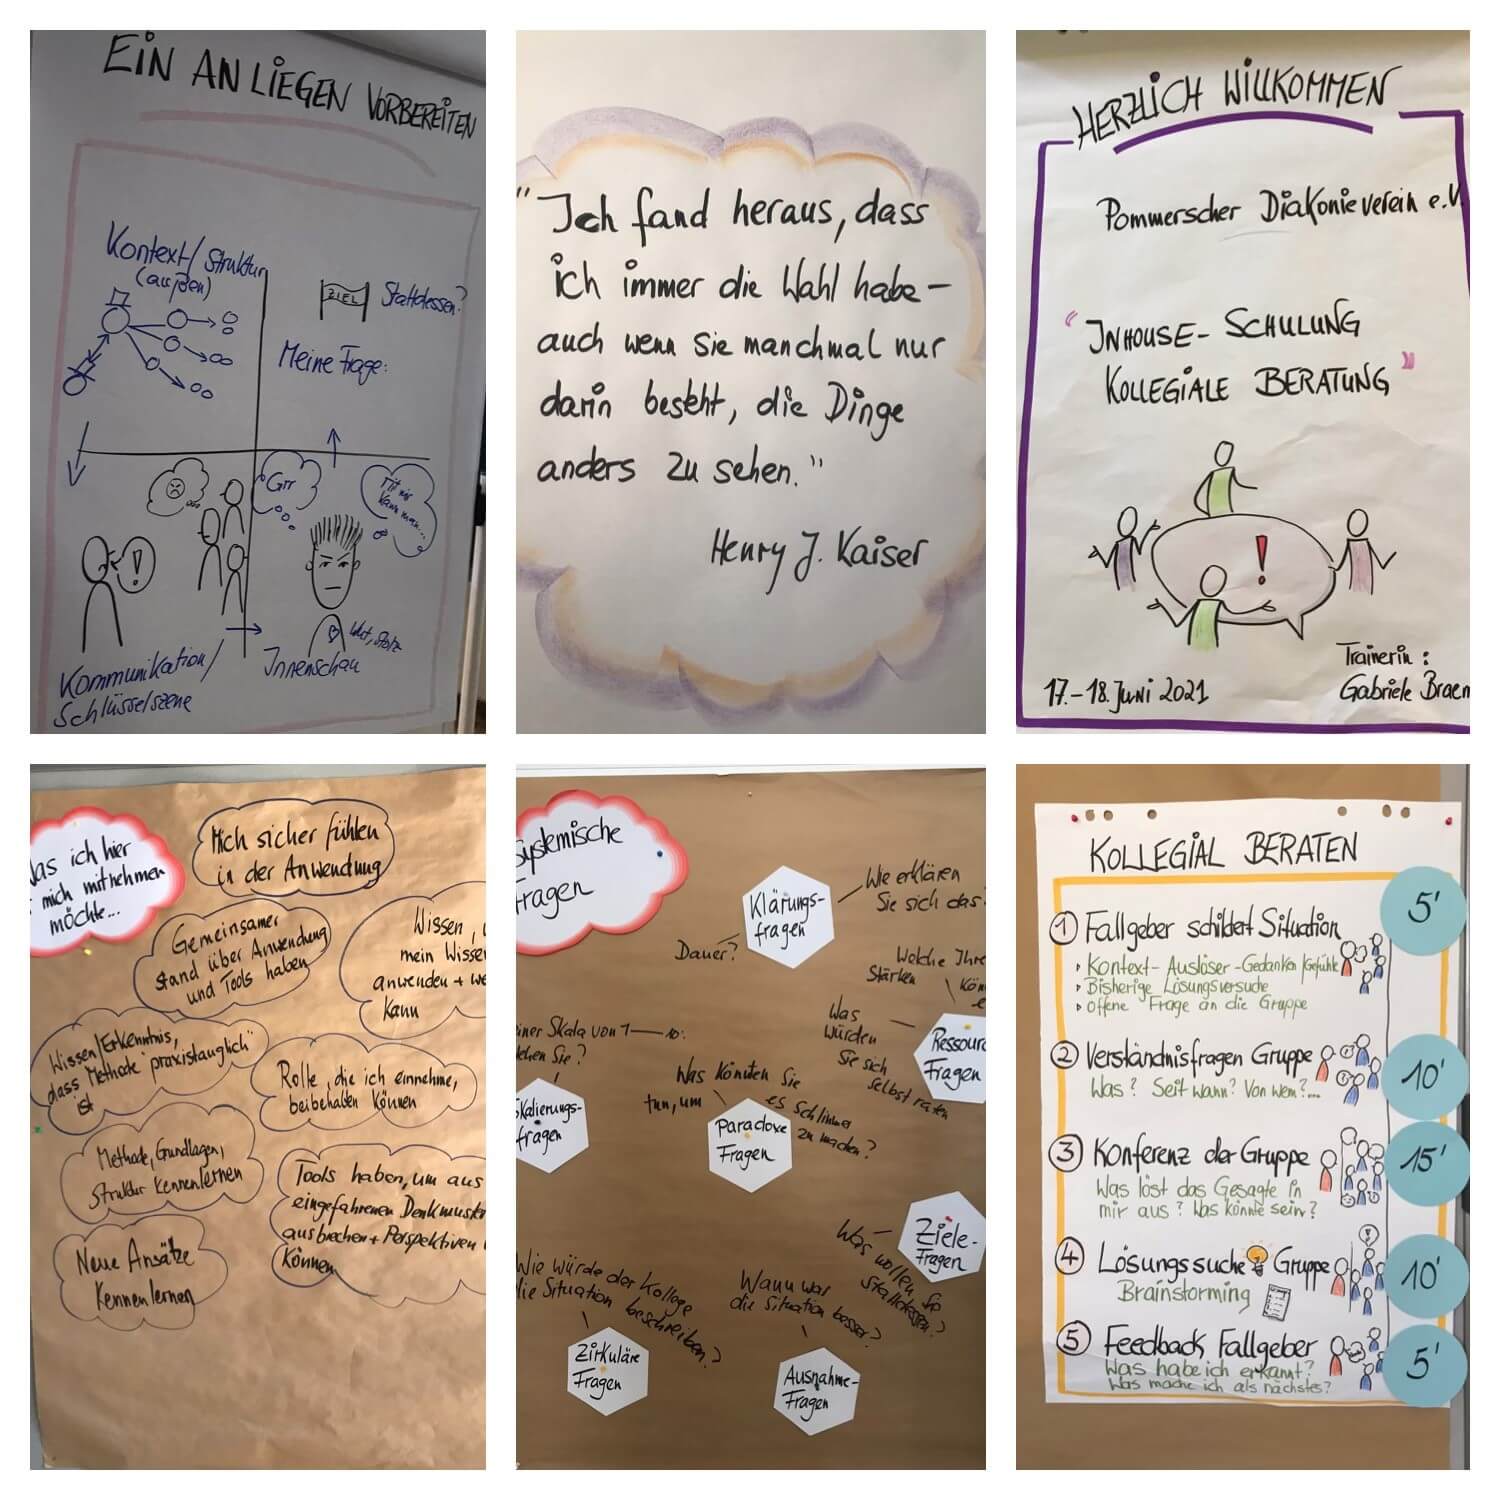 EIN ANLIEGEN VORBEREITEN
Kontext/Struktur
(außen)
ZIEL
Stattdessen?
Meine Frage:
Grr
Mit mir
kann man...
!
Wut, Stolz
Kommunikation/
Schlüsselszene
Innenschau
"Ich fand heraus, dass
ich immer die Wahl habe –
auch wenn sie manchmal nur
darin besteht, die Dinge
anders zu sehen."
Henry J. Kaiser
HERZLICH WILLKOMMEN
Pommerscher Diakonieverein e.V.
"INHOUSE-SCHULUNG
KOLLEGIALE BERATUNG"
!
17.-18. Juni 2021
Trainerin:
Gabriele Braem
Was ich hier
mich mitnehmen
möchte...
Mich sicher fühlen
in der Anwendung
Gemeinsamer
Stand über Anwendung
und Tools haben
Wissen,
mein Wissen
anwenden + we
kann
Wissen/Erkenntnis,
dass Methode "praxistauglich"
ist
Rolle, die ich einnehme,
beibehalten können
Methode, Grundlagen,
Struktur kennenlernen
Tools haben, um aus
eingefahrenen Denkmuste
ausbrechen + Perspektiven
können
Neue Ansätze
kennenlernen
Systemische
Fragen
Klärungs-
fragen
Wie erklären
Sie sich das?
Dauer?
Welche Ihre
Stärken
kön
Was
würden
Sie sich
selbst raten
Ressour
Fragen
einer Skala von 1 — 10:
tehen Sie?
Skalierungs-
fragen
Was könnten Sie
tun, um
es schlimmer
zu machen?
Paradoxe
Fragen
Ziele-
Fragen
Was wollen Sie
stattdessen?
Wie würde der Kollege
die Situation beschreiben?
Zirkuläre
Fragen
Wann war
die Situation besser?
Ausnahme-
Fragen
KOLLEGIAL BERATEN
1 Fallgeber schildert Situation
5'
Kontext-Auslöser-Gedanken/Gefühle
Bisherige Lösungsversuche
Offene Frage an die Gruppe
2 Verständnisfragen Gruppe
10'
Was? Seit wann? Von wem?...
3 Konferenz der Gruppe
15'
Was löst das Gesagte in
mir aus? Was könnte sein?
4 Lösungssuche Gruppe
10'
Brainstorming
5 Feedback Fallgeber
5'
Was habe ich erkannt?
Was mache ich als nächstes?